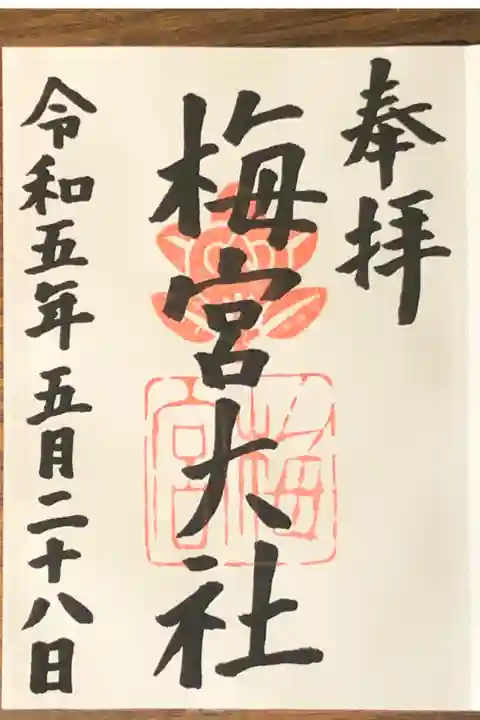 奉拝
梅宮大社
梅宮
令和五年五月二十八日